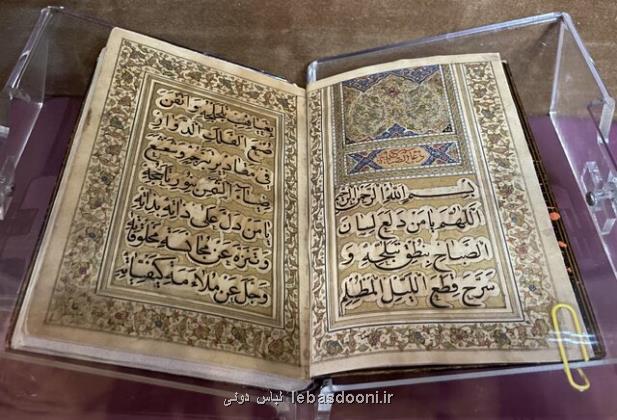 بسم الله الرحمن الرحيم
اللهم يا من دلع لسان
الصباح بنطق تبلجه و
سرح قطع الليل المظلم
بغياهب تلجلجه واتقن
صنع الفلك الدوار
في مقادير تبرجه وشعشع
ضياء الشمس بنور تاججه
يا من دل على ذاته بذاته
وتنزه عن مجانسة مخلوقاته
وجل عن ملاءمة كيفياته
لباس دونی lebasdooni.ir